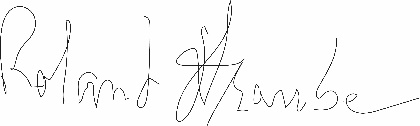 Roland Straube